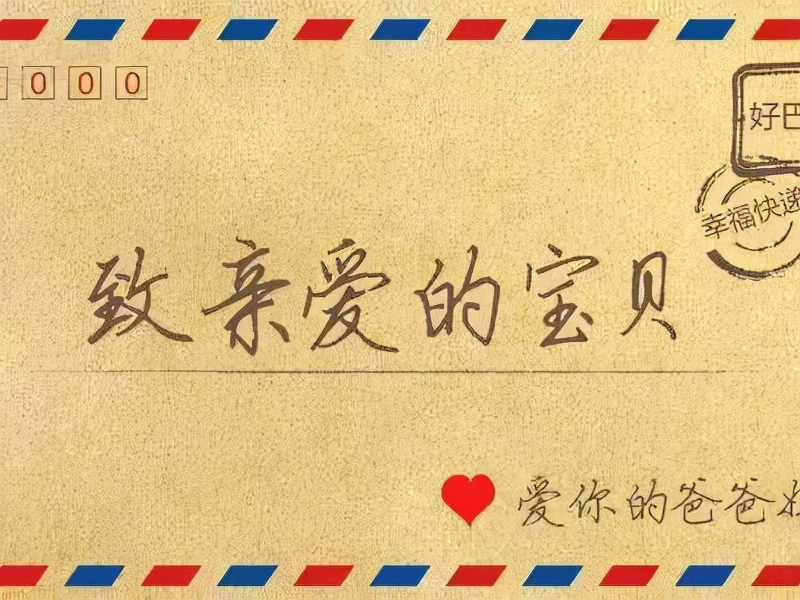 000
好
幸福快递
致亲爱的宝贝
爱你的爸爸